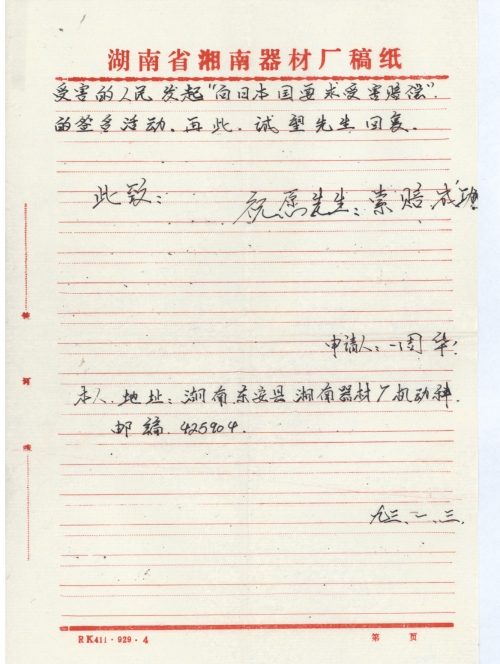 湖南省湘南器材厂稿纸
受害的人民发起"向日本国要求受害赔偿".
的签名活动.再此.试望先生回复.
此致:
祝愿先生:索赔成功
申请人:周华!
本人.地址:湖南东安县湘南器材厂机动科.
邮编.425904.
九三、一、三.
装
订
线
RK411·929·4
第 页